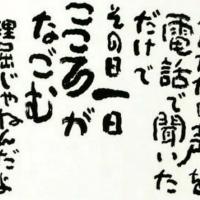 なたの声を
電話で聞いた
だけで
その日一日
こころが
なごむ
理屈じゃねんだよ